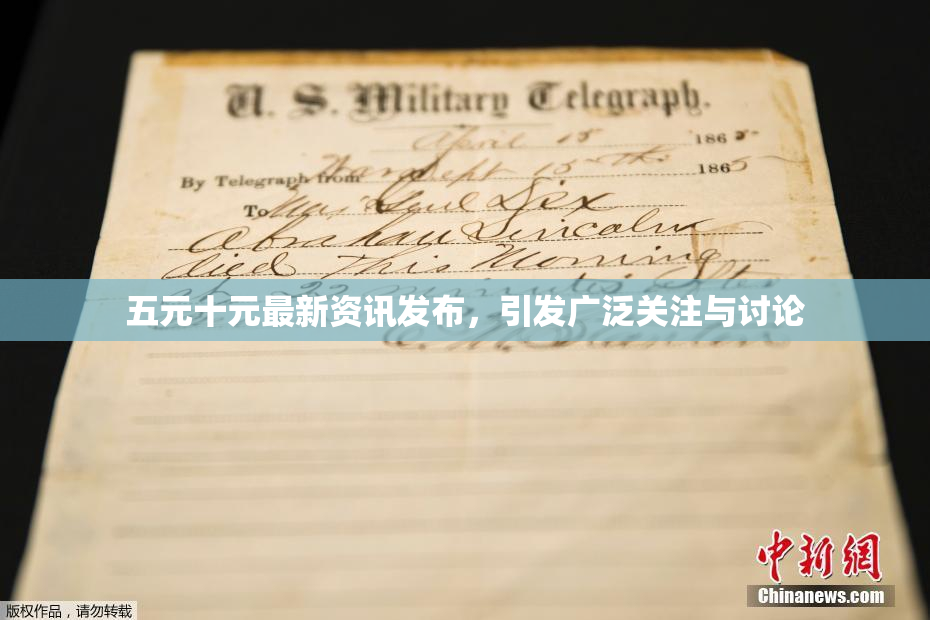 U. S. Military Telegraph.
April 15 1865
By Telegraph from War Dept 15th 1865
To Maj Genl Dix
Abraham Lincoln
died This Morning
at 22 minutes after
五元十元最新资讯发布，引发广泛关注与讨论
E. M. Stanton
中新网
Chinanews.com
版权作品，请勿转载